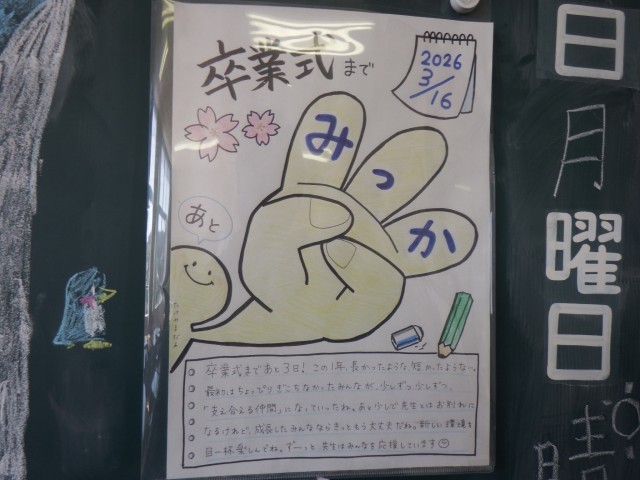 卒業式まで
2026
3/16
みっか
あと
卒業式まであと3日!この1年、長かったような、短かったような。
最初はちょっぴりぎこちなかったみんなが、少しずつ、少しずつ、
「支え合える仲間」になっていったね。あと少しで先生とはお別れに
なるけれど、成長したみんなならきっともう大丈夫だね。新しい環境を
目一杯楽しんでね。ずーっと先生はみんなを応援しています
日
月
曜
日
晴